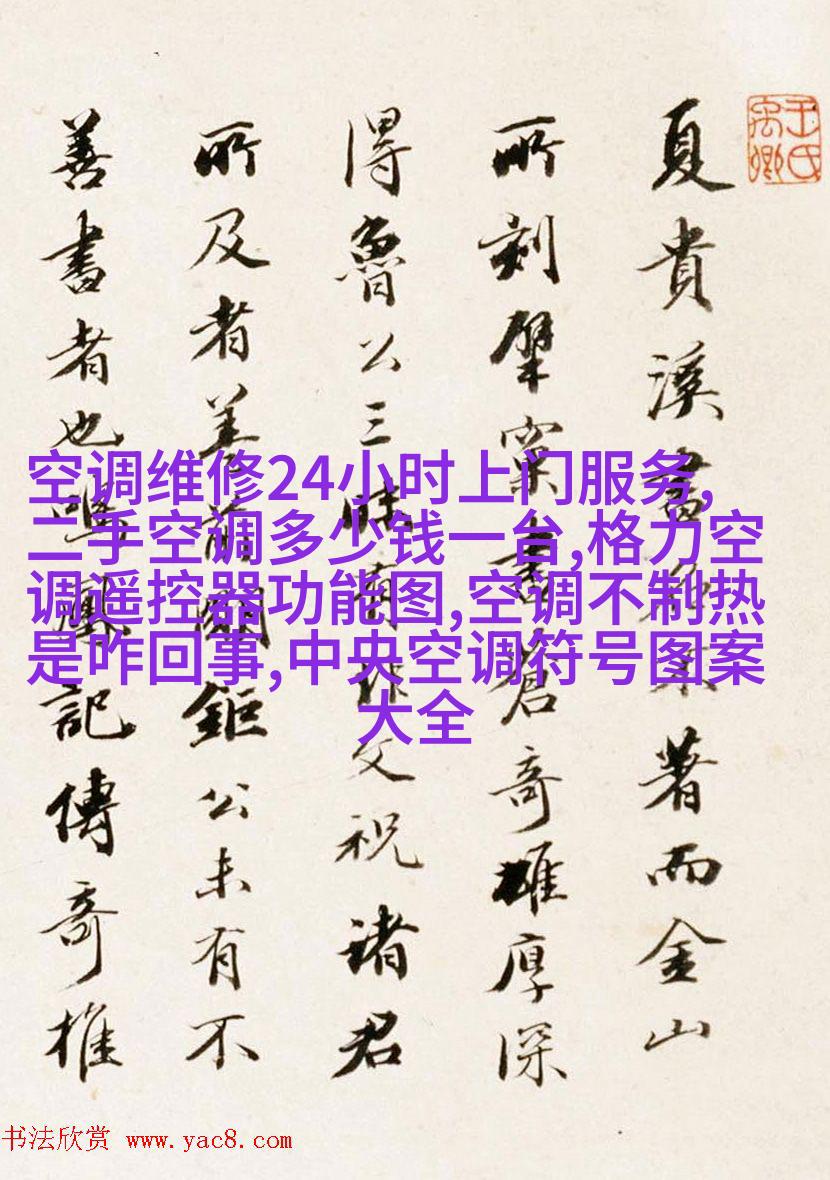 王氏禹卿
夏貴溪書不著而金山
所刻擘窠書蒼奇雄厚深
得魯公三昧文祝諸君
所及者蓋前鉅公未有不
善書者也鳴鳳記傳奇推
空调维修24小时上门服务,
二手空调多少钱一台,格力空
调遥控器功能图,空调不制热
是咋回事,中央空调符号图案
大全
书法欣赏 www.yac8.com